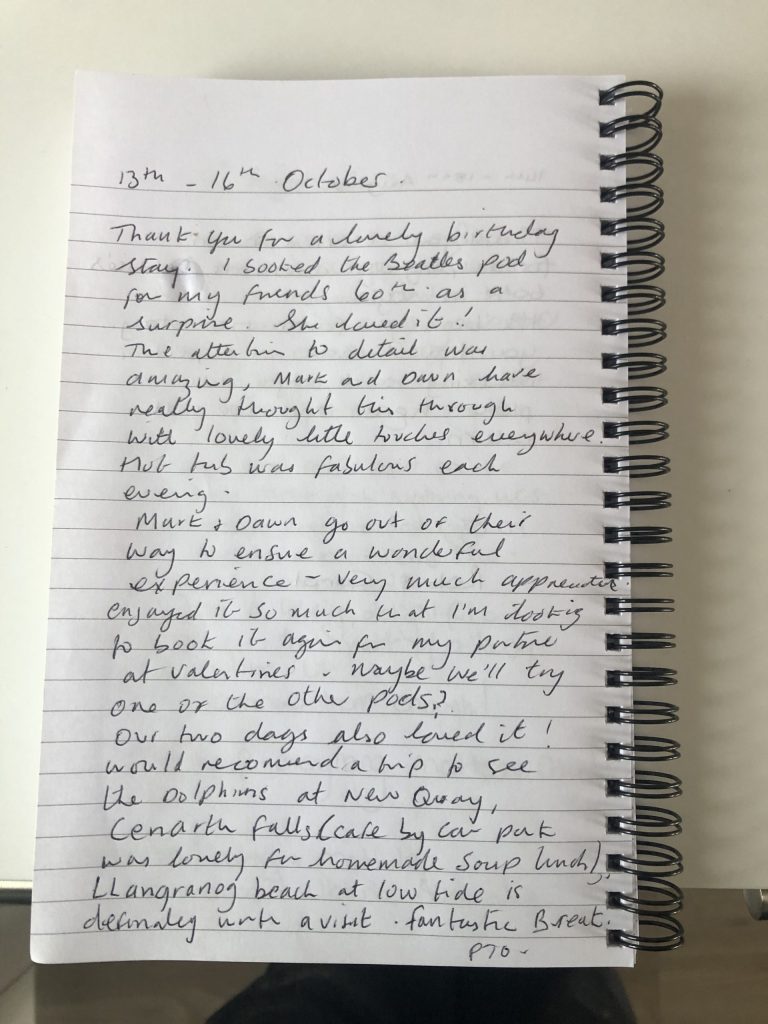 13th - 16th October.
Thank you for a lovely birthday
stay. I booked the Beatles pod
for my friends 60th as a
surprise. She loved it!
The attention to detail was
amazing, Mark and Dawn have
really thought this through
with lovely little touches everywhere.
Hot tub was fabulous each
evening.
Mark & Dawn go out of their
way to ensue a wonderful
experience - very much appreciated.
enjoyed it so much that I'm looking
to book it again for my partner
at Valentines. Maybe we'll try
one of the other pods?
Our two dogs also loved it!
would recommend a trip to see
the Dolphins at New Quay,
Cenarth Falls (cafe by car park
was lovely for homemade soup lunch),
LLangranog beach at low tide is
definately worth a visit. fantastic Break.
PTO-